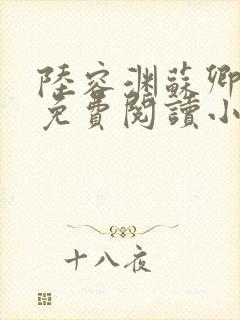 陸容渊蘇卿
免費閱讀小
十八夜